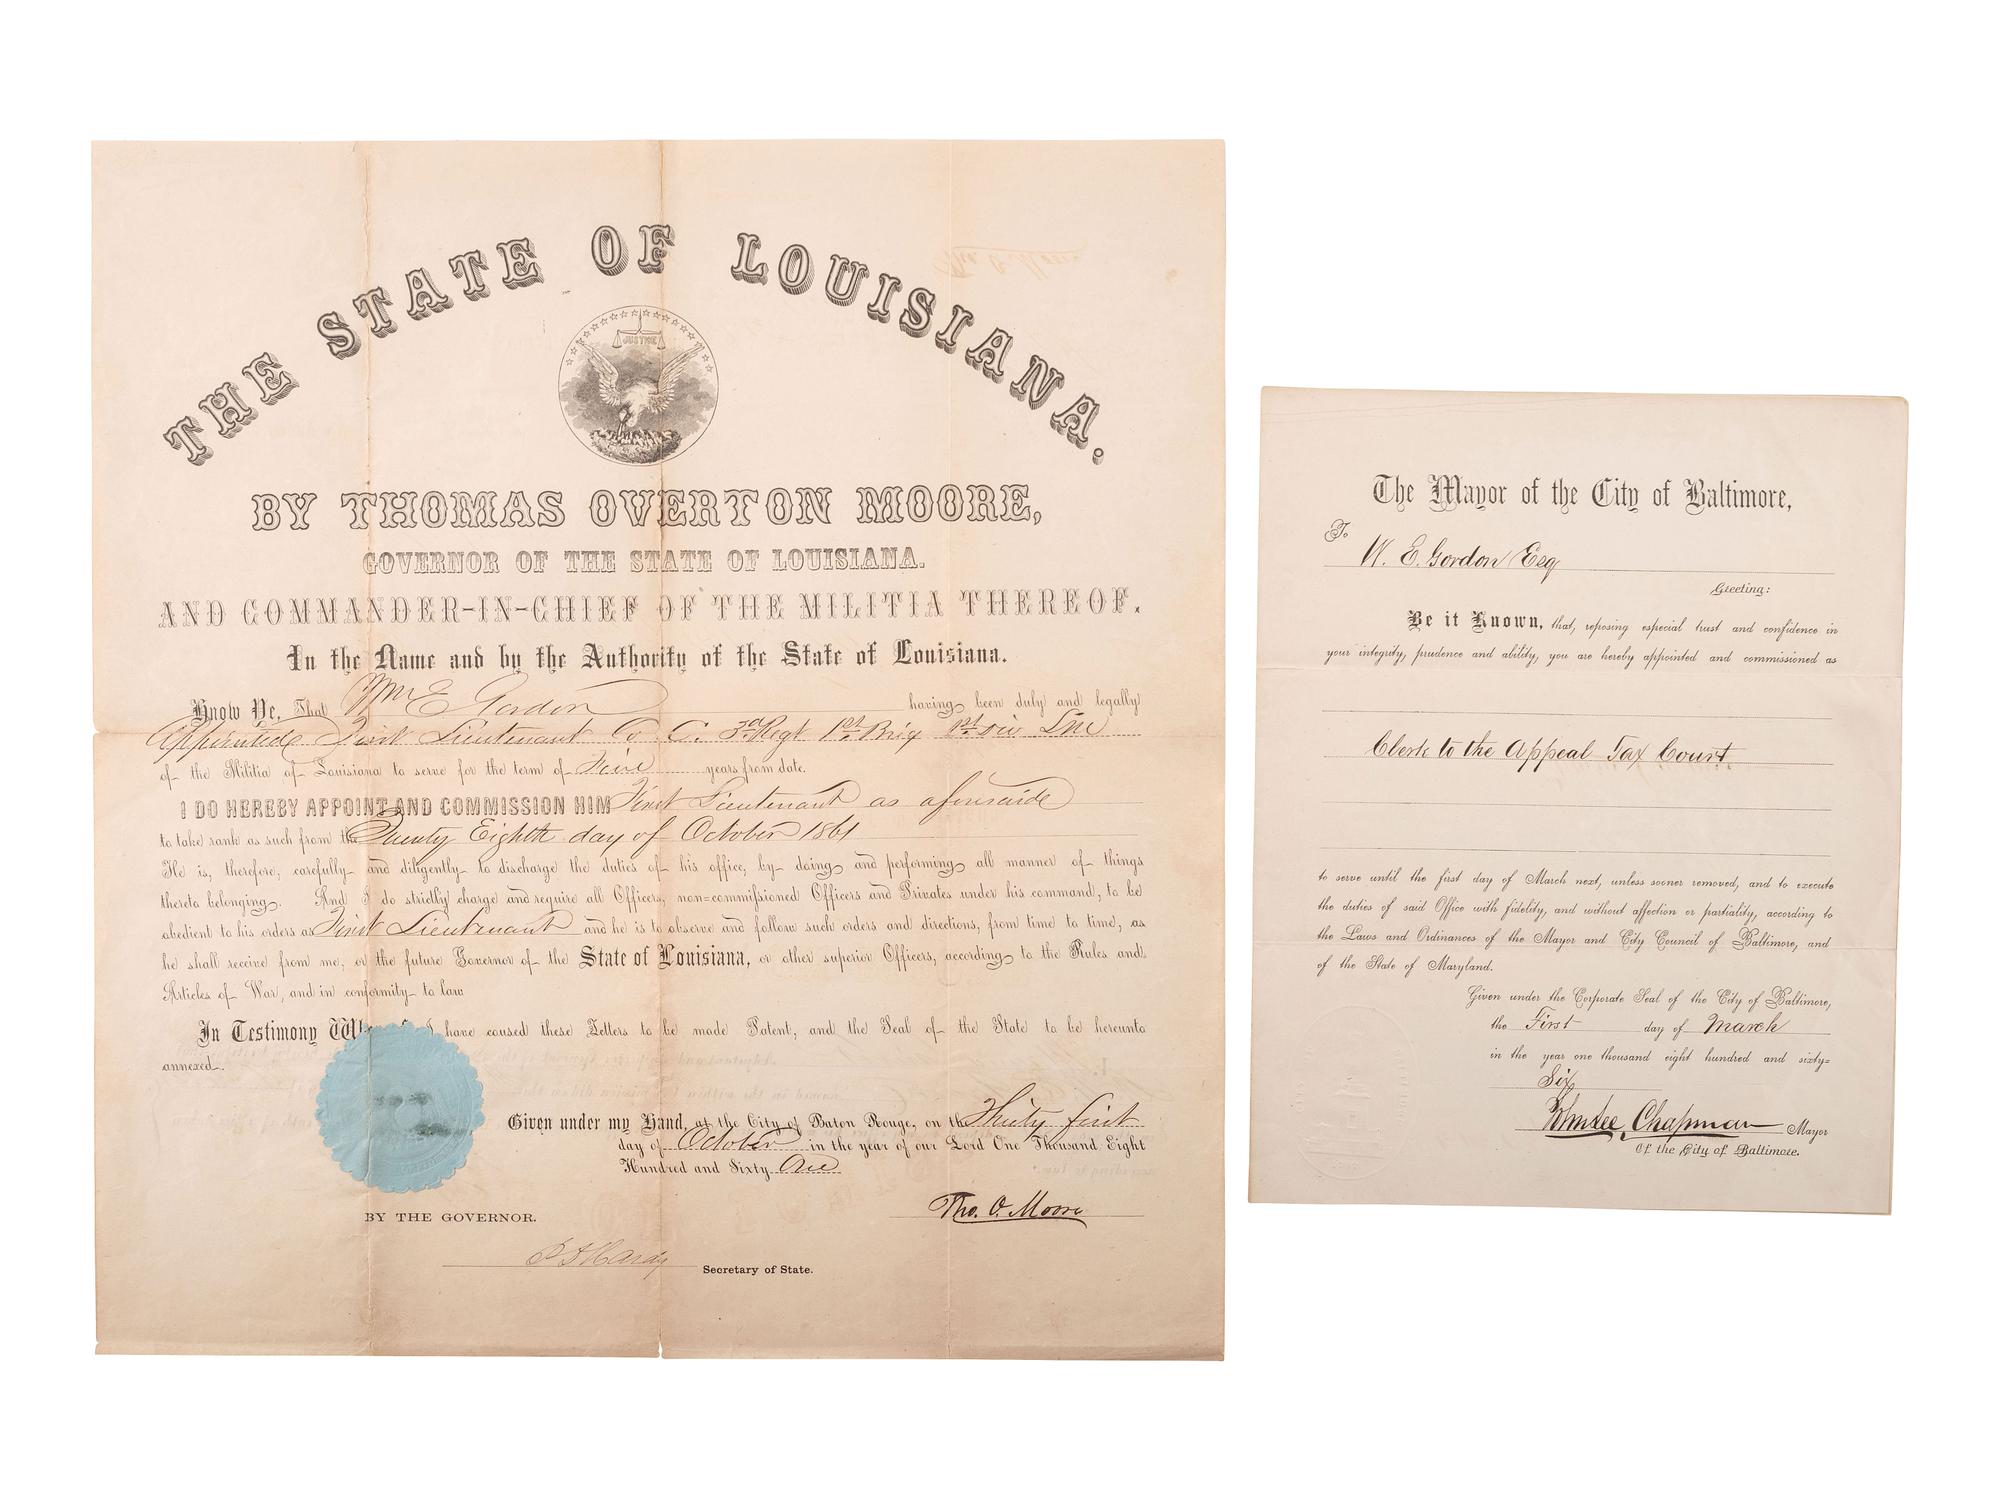 THE STATE OF LOUISIANA.
JUSTICE
BY THOMAS OVERTON MOORE,
GOVERNOR OF THE STATE OF LOUISIANA.
AND COMMANDER-IN-CHIEF OF THE MILITIA THEREOF.
In the Name and by the Authority of the State of Louisiana.
Know Ye, That Wm E Gordon having been duly and legally
Appointed First Lieutenant Co C. 3d Regt 1st Brig 1st Div
of the Militia of Louisiana to serve for the term of years from date.
I DO HEREBY APPOINT AND COMMISSION HIM First Lieutenant as aforesaide
to take rank as such from the Twenty Eighth day of October 1861
He is, therefore, carefully and diligently to discharge the duties of his office, by doing and performing all manner of things
thereto belonging. And I do strictly charge and require all Officers, non=commissioned Officers and Privates under his command, to be
obedient to his orders as First Lieutenant and he is to observe and follow such orders and directions, from time to time, as
he shall receive from me, or the future Governor of the State of Louisiana, or other superior Officers, according to the Rules and
Articles of War, and in conformity to law
In Testimony I have caused these Letters to be made Patent, and the Seal of the State to be hereunto
annexed.
Given under my Hand, at the City of Baton Rouge, on the Thirty first
day of October in the year of our Lord One Thousand Eight
Hundred and Sixty One
Tho. O. Moore
BY THE GOVERNOR.
Hardy Secretary of State.
The Mayor of the City of Baltimore,
To
W. E. Gordon Esq
Greeting:
Be it Known, that, reposing especial trust and confidence in
your integrity, prudence and ability, you are hereby appointed and commissioned as
Clerk to the Appeal Tax Court
to serve until the first day of March next, unless sooner removed, and to execute
the duties of said Office with fidelity, and without affection or partiality, according to
the Laws and Ordinances of the Mayor and City Council of Baltimore, and
of the State of Maryland.
Given under the Corporate Seal of the City of Baltimore,
the First day of March
in the year one thousand eight hundred and sixty=
Six
Jno Lee Chapman Mayor
Of the City of Baltimore.